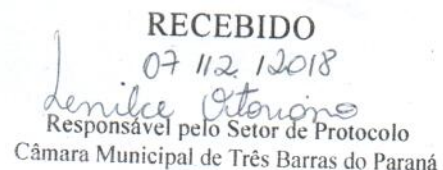 RECEBIDO
07 / 12 / 2018
Lenilce
Responsável pelo Setor de Protocolo
Câmara Municipal de Três Barras do Paraná